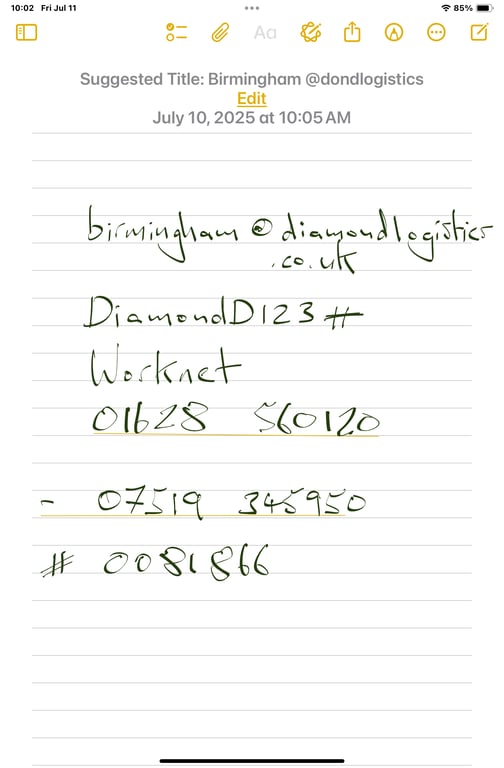 10:02 Fri Jul 11
85%
Aa
Suggested Title: Birmingham @dondlogistics
Edit
July 10, 2025 at 10:05 AM
birmingham@diamondlogistics
.co.uk
DiamondD123#
Worknet
01628 560120
- 07519 345950
# 0081866